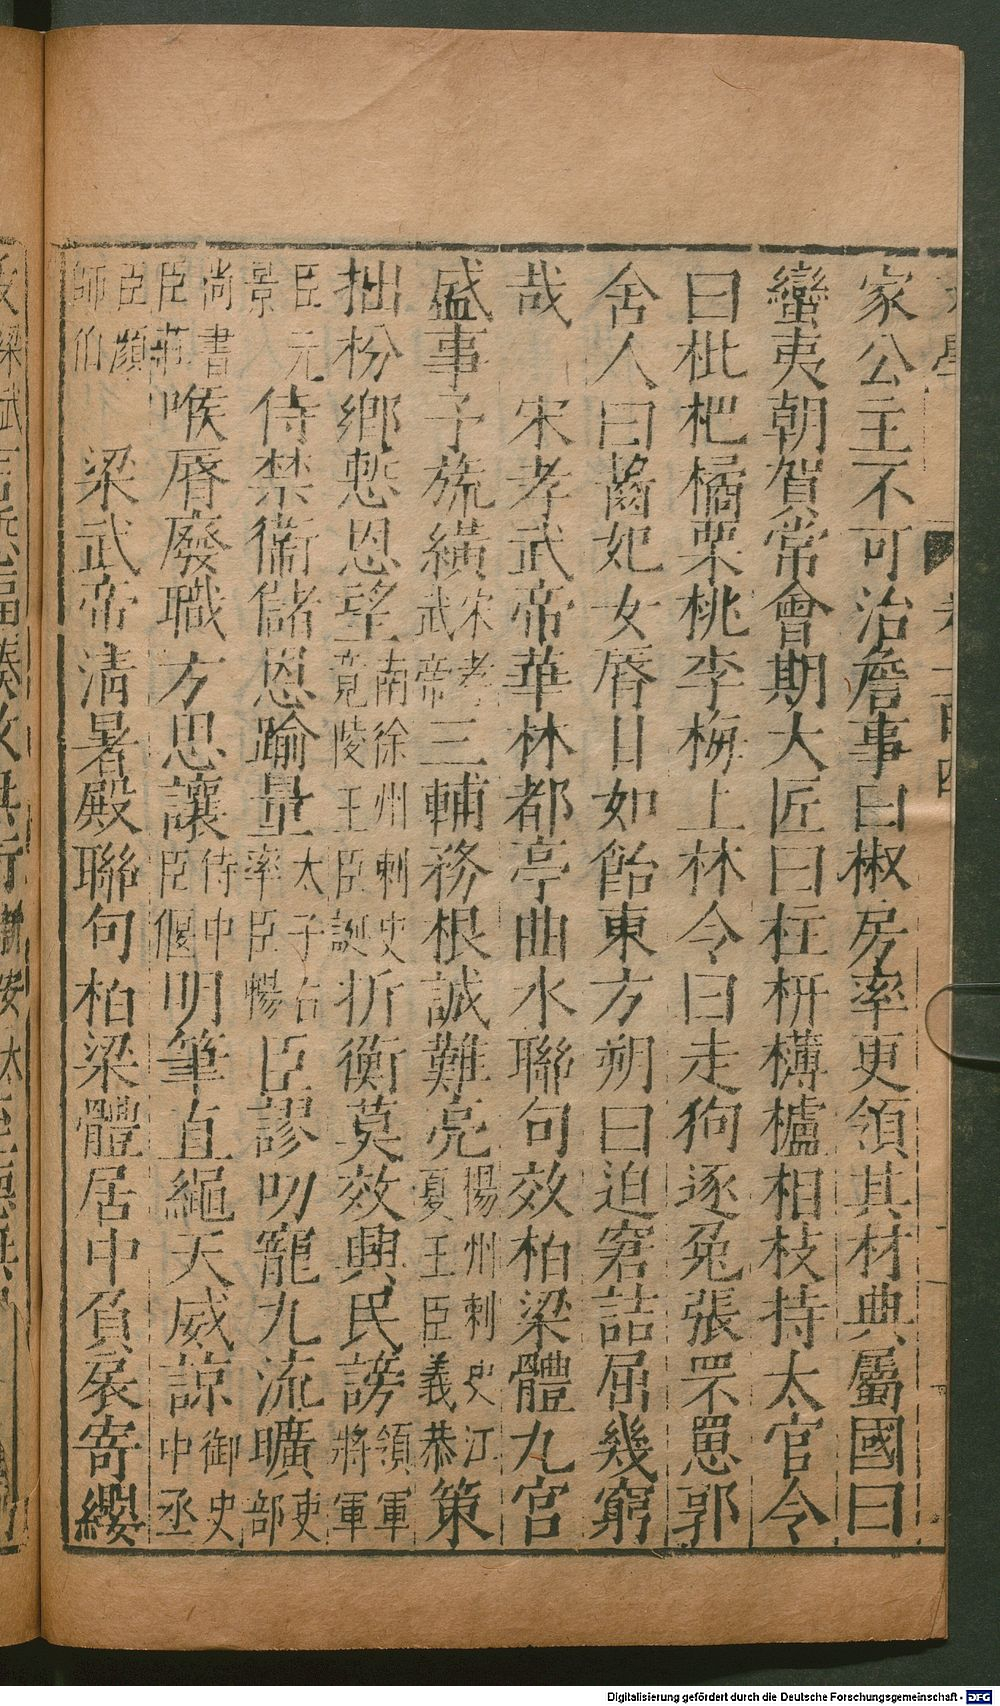 家公主不可治詹事曰椒房率更領其材典屬國曰
蠻夷朝賀常會期大匠曰柱枅欂櫨相枝持太官令
曰枇杷橘栗桃李梅上林令曰走狗逐兔張罘罳郭
舍人曰齧妃女脣甘如飴東方朔曰迫窘詰屈幾窮
哉　宋孝武帝華林都亭曲水聯句效柏梁體九宮
盛事予旒纊宋孝武帝三輔務根誠難亮揚州刺史江夏王臣義恭策
拙枌鄉慙恩望南徐州刺史竟陵王臣誕折衡莫效興民謗領軍將軍
臣元景侍禁衞儲恩踰量太子右率臣暢臣謬叨寵九流曠吏部
尚書臣莊喉脣廢職方思讓侍中臣偃明筆直繩天威諒御史中丞
臣顏師伯　梁武帝清暑殿聯句柏梁體居中負扆寄纓
Digitalisierung gefördert durch die Deutsche Forschungsgemeinschaft - DFG